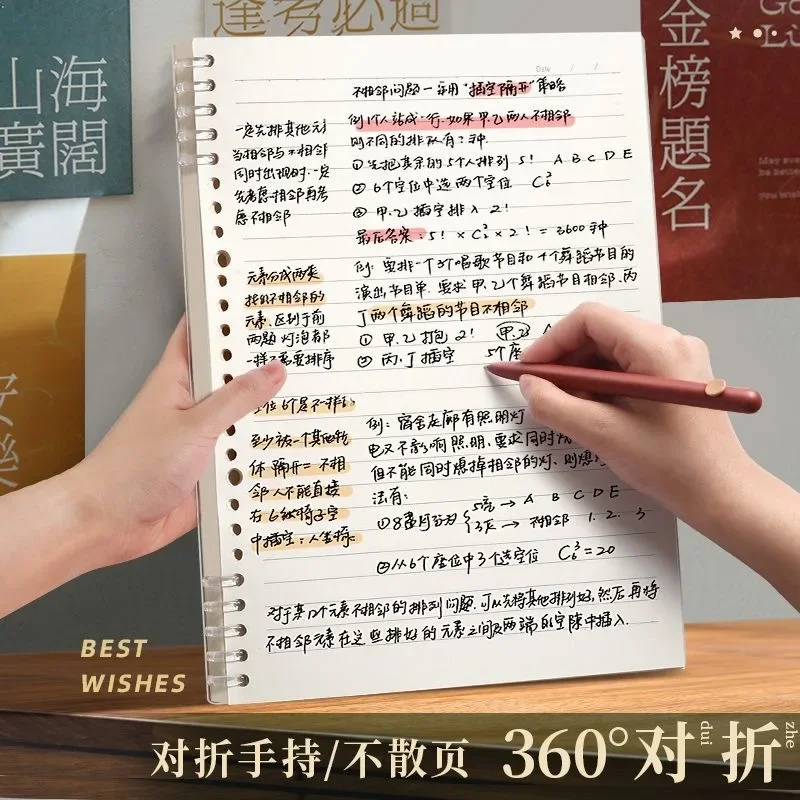 逢考必過
山海
廣闊
金榜題名
Go
Lu
May eve
be bette
you wish
Date / /
不相邻问题一采用"插空隔开"策略
一定先排其他元素
当相邻与不相邻
同时出现时,一定
先考虑相邻再考
虑不相邻
例1人站成一行,如果甲乙两人不相邻
则不同的排队有?种
①先把其余的5个人排列 5! A B C D E
②6个空位中选两个空位 C₆²
③甲.乙插空排入 2!
最后答案:5! × C₆² × 2! = 3600种
元素分成两类
找的不相邻的
元素,区别于前
两题 灯泡都
一样不需要排序
例:要排一个3个唱歌节目和4个舞蹈节目的
演出节目单,要求甲.乙2个舞蹈节目相邻,丙
丁两个舞蹈的节目不相邻
①甲.乙打包 2! 甲.乙 A
②丙.丁插空 5个座
至少被一个其他物
体隔开=不相
邻 人不能直接
在6张椅子空
中插空:人坐椅
例:宿舍走廊有照明灯
电又不影响照明,要求同时
但不能同时熄掉相邻的灯,则熄
法有:
①8盏灯分为 5亮→A B C D E
3灭→不相邻 1. 2. 3
②从6个座位中3个选空位 C₆³=20
对于某几个元素不相邻的排列问题,可以先将其他排列好,然后再将
不相邻元素在这些排好的元素之间及两端的空隙中插入.
BEST
WISHES
对折手持/不散页 360°对折
dui
zhe